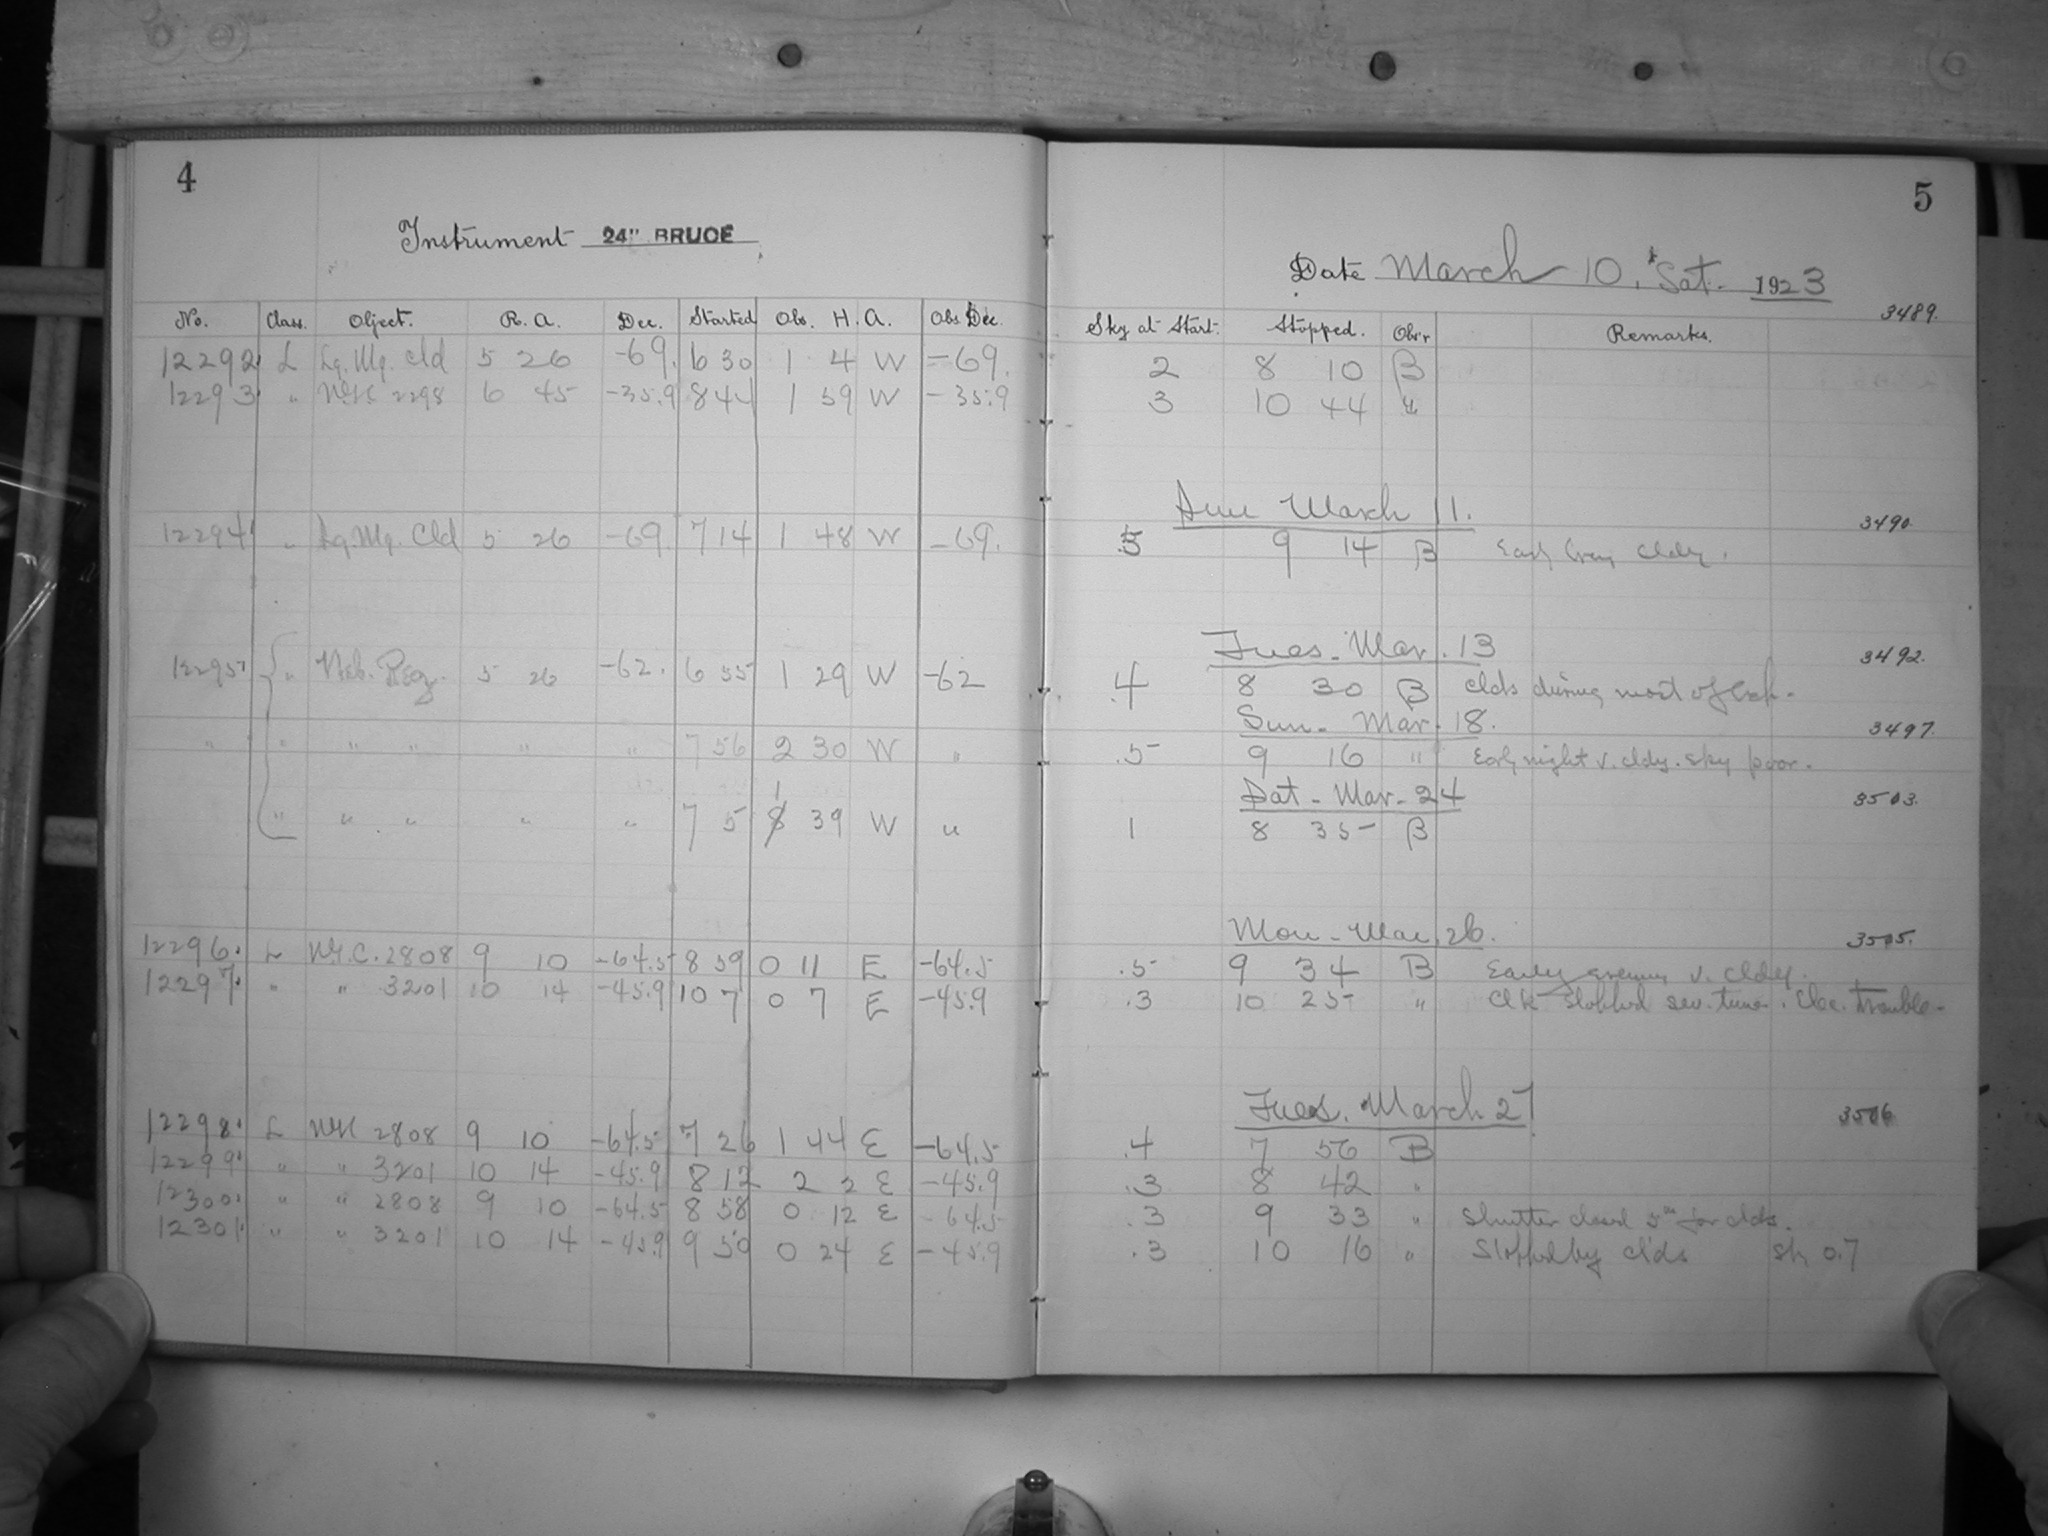 4
Instrument 24" BRUCE
No. Class. Object. R. A. Dec. Started Obs. H. A. Obs Dec.
12292 L Lg. Mg. Cld 5 26 -69. 6 30 1 4 W -69.
12293 " N.G.C. 2298 6 45 -35.9 8 44 1 59 W -35.9
12294 " Lg. Mg. Cld 5 26 -69. 7 14 1 48 W -69.
12295 " Neb. Reg. 5 26 -62. 6 55 1 29 W -62
" " " " " " 7 56 2 30 W "
" " " " " 7 5 1 39 W "
12296. L N.G.C. 2808 9 10 -64.5 8 59 0 11 E -64.5
12297. " " 3201 10 14 -45.9 10 7 0 7 E -45.9
12298. L NGC 2808 9 10 -64.5 7 26 1 44 E -64.5
12299. " " 3201 10 14 -45.9 8 12 2 2 E -45.9
12300. " " 2808 9 10 -64.5 8 58 0 12 E -64.5
12301. " " 3201 10 14 -45.9 9 50 0 24 E -45.9
5
Date March 10, Sat. 1923
3489.
Sky at Start. Stopped. Obs'r Remarks.
2 8 10 B
3 10 44 "
Sun March 11.
3490.
.5 9 14 B Early Eveng Cldy.
Tues. Mar. 13
3492.
.4 8 30 B Clds during most of Exp.
Sun. Mar. 18.
3497.
.5 9 16 " Early night v. cldy. sky poor.
Sat. Mar. 24
3503.
1 8 35 B
Mon. Mar. 26.
3505.
.5 9 34 B Early evening v. cldy.
.3 10 25 " Clk stopped sev. times. Elec. trouble.
Tues. March 27
3506
.4 7 56 B
.3 8 42 "
.3 9 33 " Shutter closed 5m for clds.
.3 10 16 " Stopped by clds 0.7